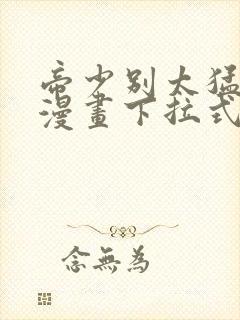 帝少別太猛
漫畫下拉式
念無為